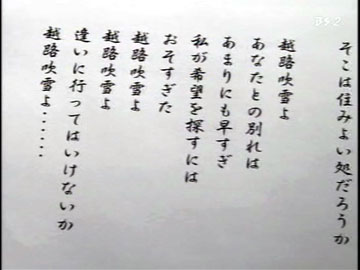 BS2
そこは住みよい処だろうか
越路吹雪よ
あなたとの別れは
あまりにも早すぎ
私が希望を探すには
おそすぎた
越路吹雪よ
越路吹雪よ
逢いに行ってはいけないか
越路吹雪よ……